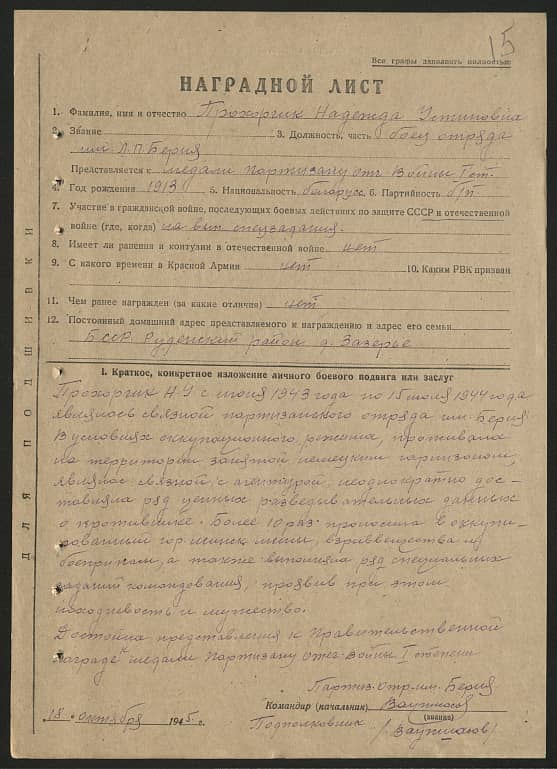 15
Все графы заполнять полностью
НАГРАДНОЙ ЛИСТ
1. Фамилия, имя и отчество Прохорчик Надежда Устиновна
2. Звание 3. Должность, часть боец отряда
им. Л.П. Берия
Представляется к медали партизану Отч. Войны I ст.
4. Год рождения 1913 5. Национальность белорусс 6. Партийность б/п
7. Участие в гражданской войне, последующих боевых действиях по защите СССР и отечественной
войне (где, когда) на вып. спецзадания.
8. Имеет ли ранения и контузии в отечественной войне нет
9. С какого времени в Красной Армии нет 10. Каким РВК призван
11. Чем ранее награжден (за какие отличия) нет
12. Постоянный домашний адрес представляемого к награждению и адрес его семьи
БССР Руденский район д. Зазерье
I. Краткое, конкретное изложение личного боевого подвига или заслуг
Прохорчик Н.У с июня 1943 года по 15 июля 1944 года
являлась связной партизанского отряда им. Берия
В условиях оккупационного режима, проживала
на территории занятой немецким гарнизоном,
являлась связной с агентурой, неоднократно дос-
тавляла ряд ценных разведывательных данных
о противнике. Более 10 раз проносила в оккупи-
рованный гор. Минск мины, взрыввещества и
боеприпасы, а также выполняла ряд специальных
заданий командования, проявив при этом
находчивость и мужество.
Достойна представления к Правительственной
награде медали Партизану Отеч. Войны I степени
Партиз. Отр. им. Берия
Командир (начальник) Ваупшасов
(звание)
18 октября 1945 г. Подполковник /Ваупшасов/
ДЛЯ ПОДШИВКИ